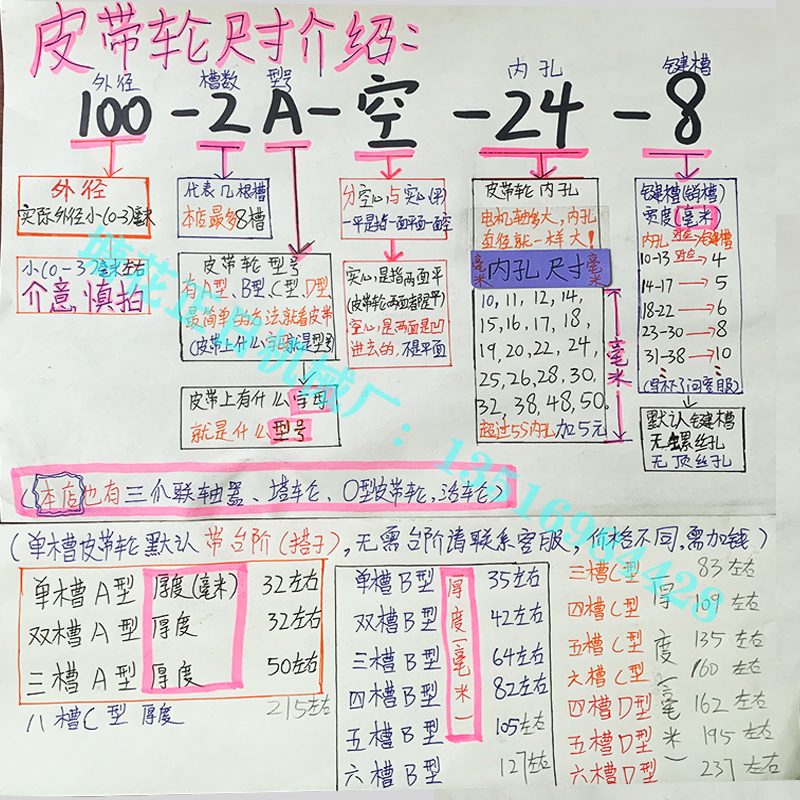 皮带轮尺寸介绍:
外径 槽数 型号 内孔 键槽
100-2A-空-24-8
外径
实际外径小(0-3)毫米
小(0-3)毫米左右
介意慎拍
代表几根槽
本店最多8槽
皮带轮型号
有A型、B型、C型、D型
最简单的办法就看皮带
(皮带上什么字母就是型号)
皮带上有什么字母
就是什么型号
分空心与实心(平)
一平是指一面平面一面空
实心,是指两面平
(皮带轮两面都是平)
空心,是两面是凹
进去的,不是平面
皮带轮内孔
电机轴多大,内孔
直径就一样大!
毫米 内孔尺寸 毫米
10, 11, 12, 14,
15, 16, 17, 18,
19, 20, 22, 24,
25, 26, 28, 30,
32, 38, 48, 50.
超过55内孔加5元
毫米
键槽(销槽)
宽度(毫米)
内孔 对应 键槽
10-13 对应→4
14-17→5
18-22→6
23-30→8
31-38→10
默认键槽
无螺丝孔
无顶丝孔
(本店也有三爪联轴器、塔轮、O型皮带轮,活轮)
(单槽皮带轮默认带台阶(搭子),无需台阶请联系客服,价格不同,需加钱)
单槽A型 厚度(毫米) 32左右
双槽A型 厚度 32左右
三槽A型 厚度 50左右
八槽C型 厚度 215左右
厚度(毫米)
单槽B型 35左右
双槽B型 42左右
三槽B型 64左右
四槽B型 82左右
五槽B型 105左右
六槽B型 127左右
厚度(毫米)
三槽C型 83左右
四槽C型 109左右
五槽C型 135左右
六槽C型 160左右
四槽D型 162左右
五槽D型 195左右
六槽D型 237左右